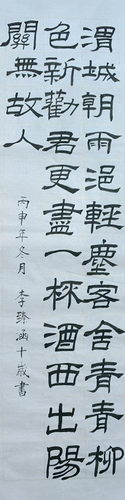 渭城朝雨浥輕塵客舍青青柳
色新勸君更盡一杯酒西出陽
關無故人
丙申年冬月 李臻涵十歲書